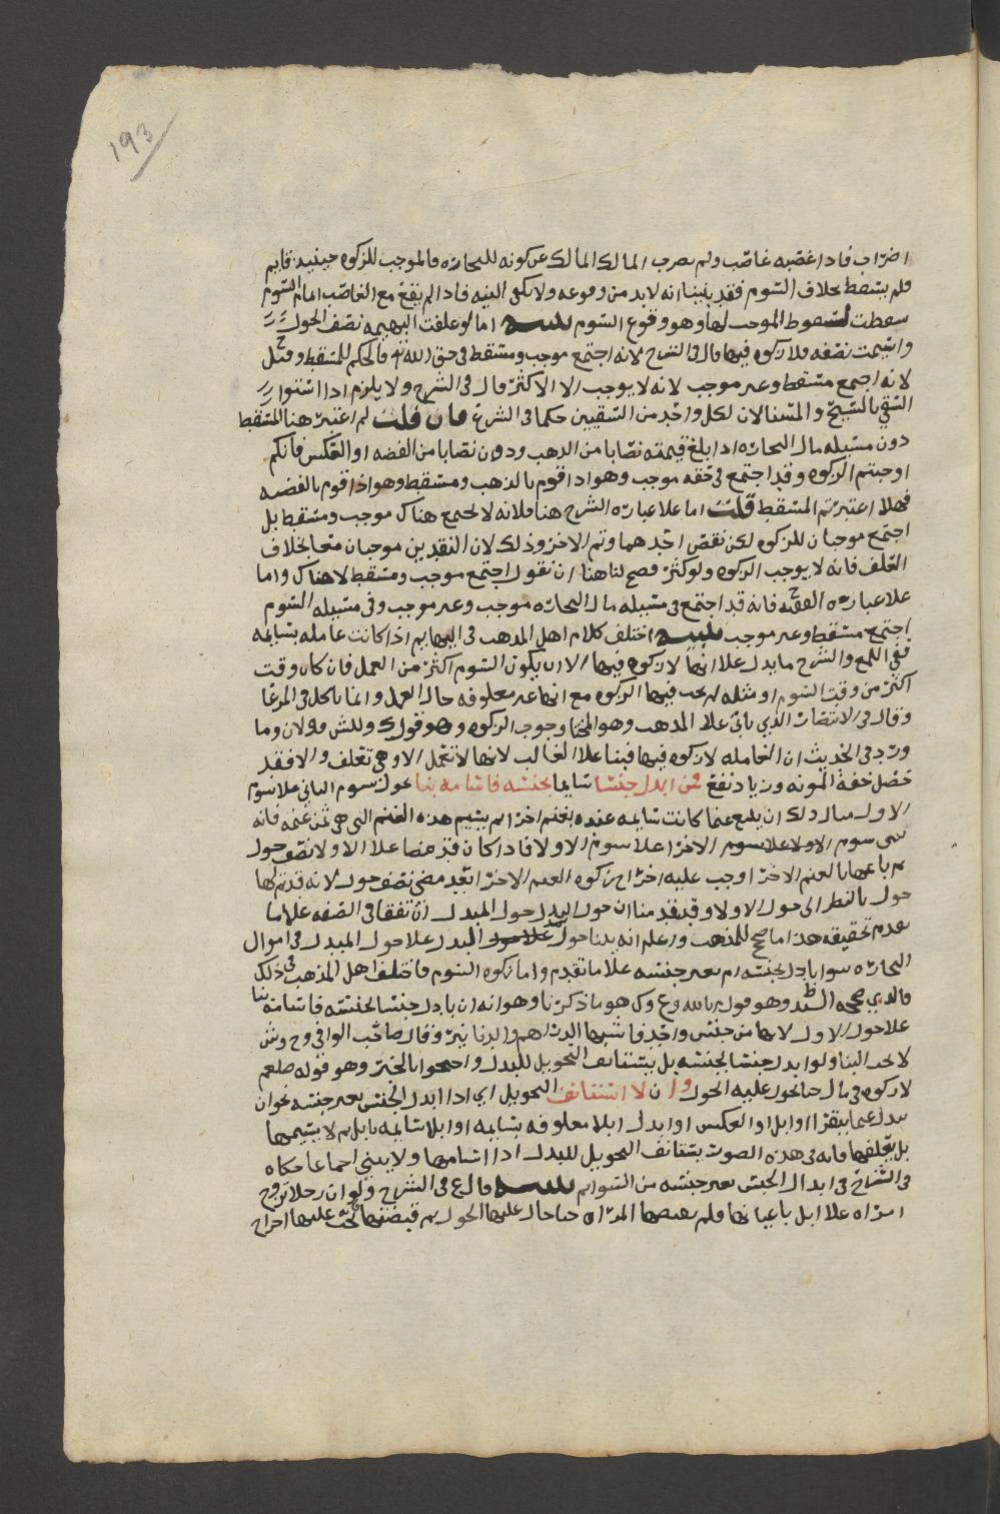 193
اضراب فاذا غصبه غاصب ولم يصرب المالك المالك عن كونه للتجارة فالموجب للزكوه حينيد قايم
فلم يسقط بخلاف السوم فقد بينا انه لابد من وقوعه ولا تكفي النيه فاذا لم يقع مع الغاصب امام السوم
سقطت لسقوط الموجب لها وهو وقوع السوم تنبيه اما لو علفت البهيمه نصف الحول
واسيمت نصفه فلا زكوه فيها قال في الشرح لانه اجتمع موجب ومسقط في حق الله تع فالحكم للمسقط وقيل
لانه اجتمع مسقط وغير موجب لانه لا يوجب الا الاكثر قال في الشرح ولا يلزم اذا استوا
السقي بالسيح والمسنا لان لكل واحد من السقيين حكما في الشرع فان قلت لم اعتبر هنا المسقط
دون مسيله مال التجاره اذا بلغ قيمته نصابا من الذهب ودون نصابا من الفضه او العكس فانكم
اوجبتم الزكوه وقد اجتمع في حقه موجب وهو اذا قوم بالذهب ومسقط وهو اذا قوم بالفضه
فهلا اعتبرتم المسقط قلت اما علا عبارة الشرح هنا فلانه لا يجمع هناك موجب ومسقط بل
اجتمع موجبان للزكوه لكن نقص احدهما وتم الاخر وذلك لان النقدين موجبان معا بخلاف
العلف فانه لا يوجب الزكوه ولو كثر فصح لنا هنا ان نقول اجتمع موجب ومسقط لا هناك واما
علا عباره الفقيه ح فانه قد اجتمع في مسيله مال التجاره موجب وغير موجب وفي مسيله السوم
اجتمع مسقط وغير موجب تنبيه اختلف كلام اهل المذهب في البهايم اذا كانت عامله بسايمه
ففي اللمع والشرح ما يدل علا انها لا زكوه فيها الا ان يكون السوم اكثر من العمل فان كان وقت
اكثر من وقت السوم او مثله لم يجب فيها الزكوه مع انها غير معلوفه حال العمل وانما تاكل في المرعا
وقال في الانتصار الذي ياتي علا المذهب وهو المختار وجوب الزكوه وهو قول ك وللش قولان وما
ورد في الحديث ان العامله لا زكوه فيها فبنا علا الغالب لانها لا تعمل الا وهي تعلف والا فقد
حصل خفة المونه وزياد نفع فمن ابدل جنسا سايما بجنسه فاسامه بنا حول سوم الثاني علا سوم
الاول مثال ذلك ان يبيع غنما كانت سايمه عنده بغنم اخر ثم يسيم هذه الغنم التي هي ثمن غنمه فانه
يبني سوم الاولا علا سوم الاخرا علا سوم الاولا فاذا كان قد مضا علا الاولا نصف حول
ثم باعها بالغنم الاخرا وجب عليه اخراج زكوه الغنم الاخرا بعد مضي نصف حول لانه قد تم لها
حول بالنظر الى حول الاولا وقد قدمنا ان حول البدل حول المبدل ان تفقا في الصفه علا ما
تقدم تحقيقه هذا ما صح للمذهب واعلم انه بدنا حول علا حول البدل علا حول المبدل في اموال
التجاره سوا بادل بجنسه ام بغير جنسه علا ما تقدم واما زكوه السوم فاختلف اهل المذهب في ذلك
فالذي صححه السيد ط وهو قول م بالله وع وك هو ما ذكرنا وهو انه ان بادل جنسا بجنسه فاسامه بنا
علا حول الاول لانها من جنس واحد فاشبها الدراهم والدنانير وقال صاحب الوافي وح وش
لا يحد البنا ولو ابدل جنسا بجنسه بل يستانف التحويل للبدل واحتجوا بالخبر وهو قوله صلعم
لا زكوه في مال حتا يحول عليه الحول وان لا استانف التحويل اي اذا ابدل الجنس بغير جنسه نحو ان
يبدل غنما ببقر او ابل او العكس او ابدل ابلا معلوفه بسايمه او ابلا سايمه بابل لم لا يسيمها
بل يعلفها فانه في هذه الصور يستانف التحويل للبدل اذا اسامها ولا يبني اجماعا حكاه
في الشرح في ابدال الجنس بغير جنسه من السوايم تنبيه قال ع في الشرح ولو ان رجلا تزوج
امراه علا ابل باعيانها فلم يقبضها المراه حتا حال عليها الحول ثم قبضتها فانه يجب عليها اخراج